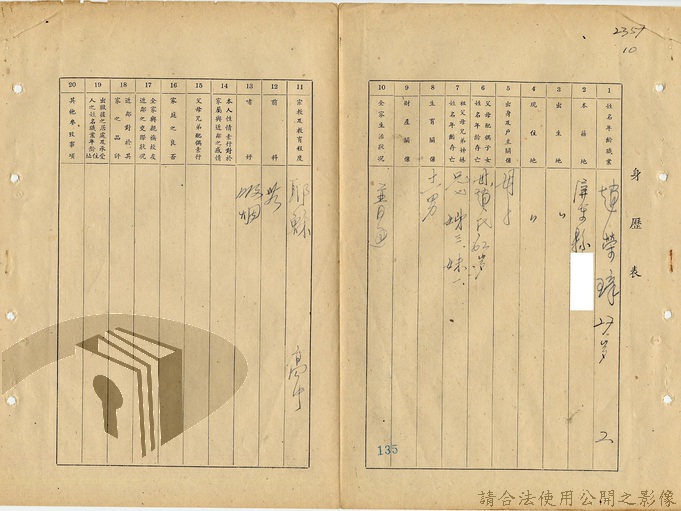 2357
10
身歷表
1 姓名年齡職業 趙榮璋 27岁 工
2 本籍地 屏東縣
3 出生地 〃
4 現住地 〃
5 出身及戶主關係
6 父母配偶子女姓名年齡存亡 母趙氏 岁
7 祖父母兄弟姊妹姓名年齡存亡 兄 姊三 妹一
8 生育關係 男
9 財產關係
10 全家生活狀況 普通
11 宗教及教育程度 耶穌 高中
12 前科
13 嗜好 吸烟
14 本人性情素行對於家屬與近鄰之感情
15 父母兄弟配偶素行
16 家庭之良否
17 全家與親族故友近鄰之交際狀況
18 近鄰對於其家之品評
19 出獄後之居處及承受人之姓名職業年齡住址
20 其他參攷事項
135
請合法使用公開之影像